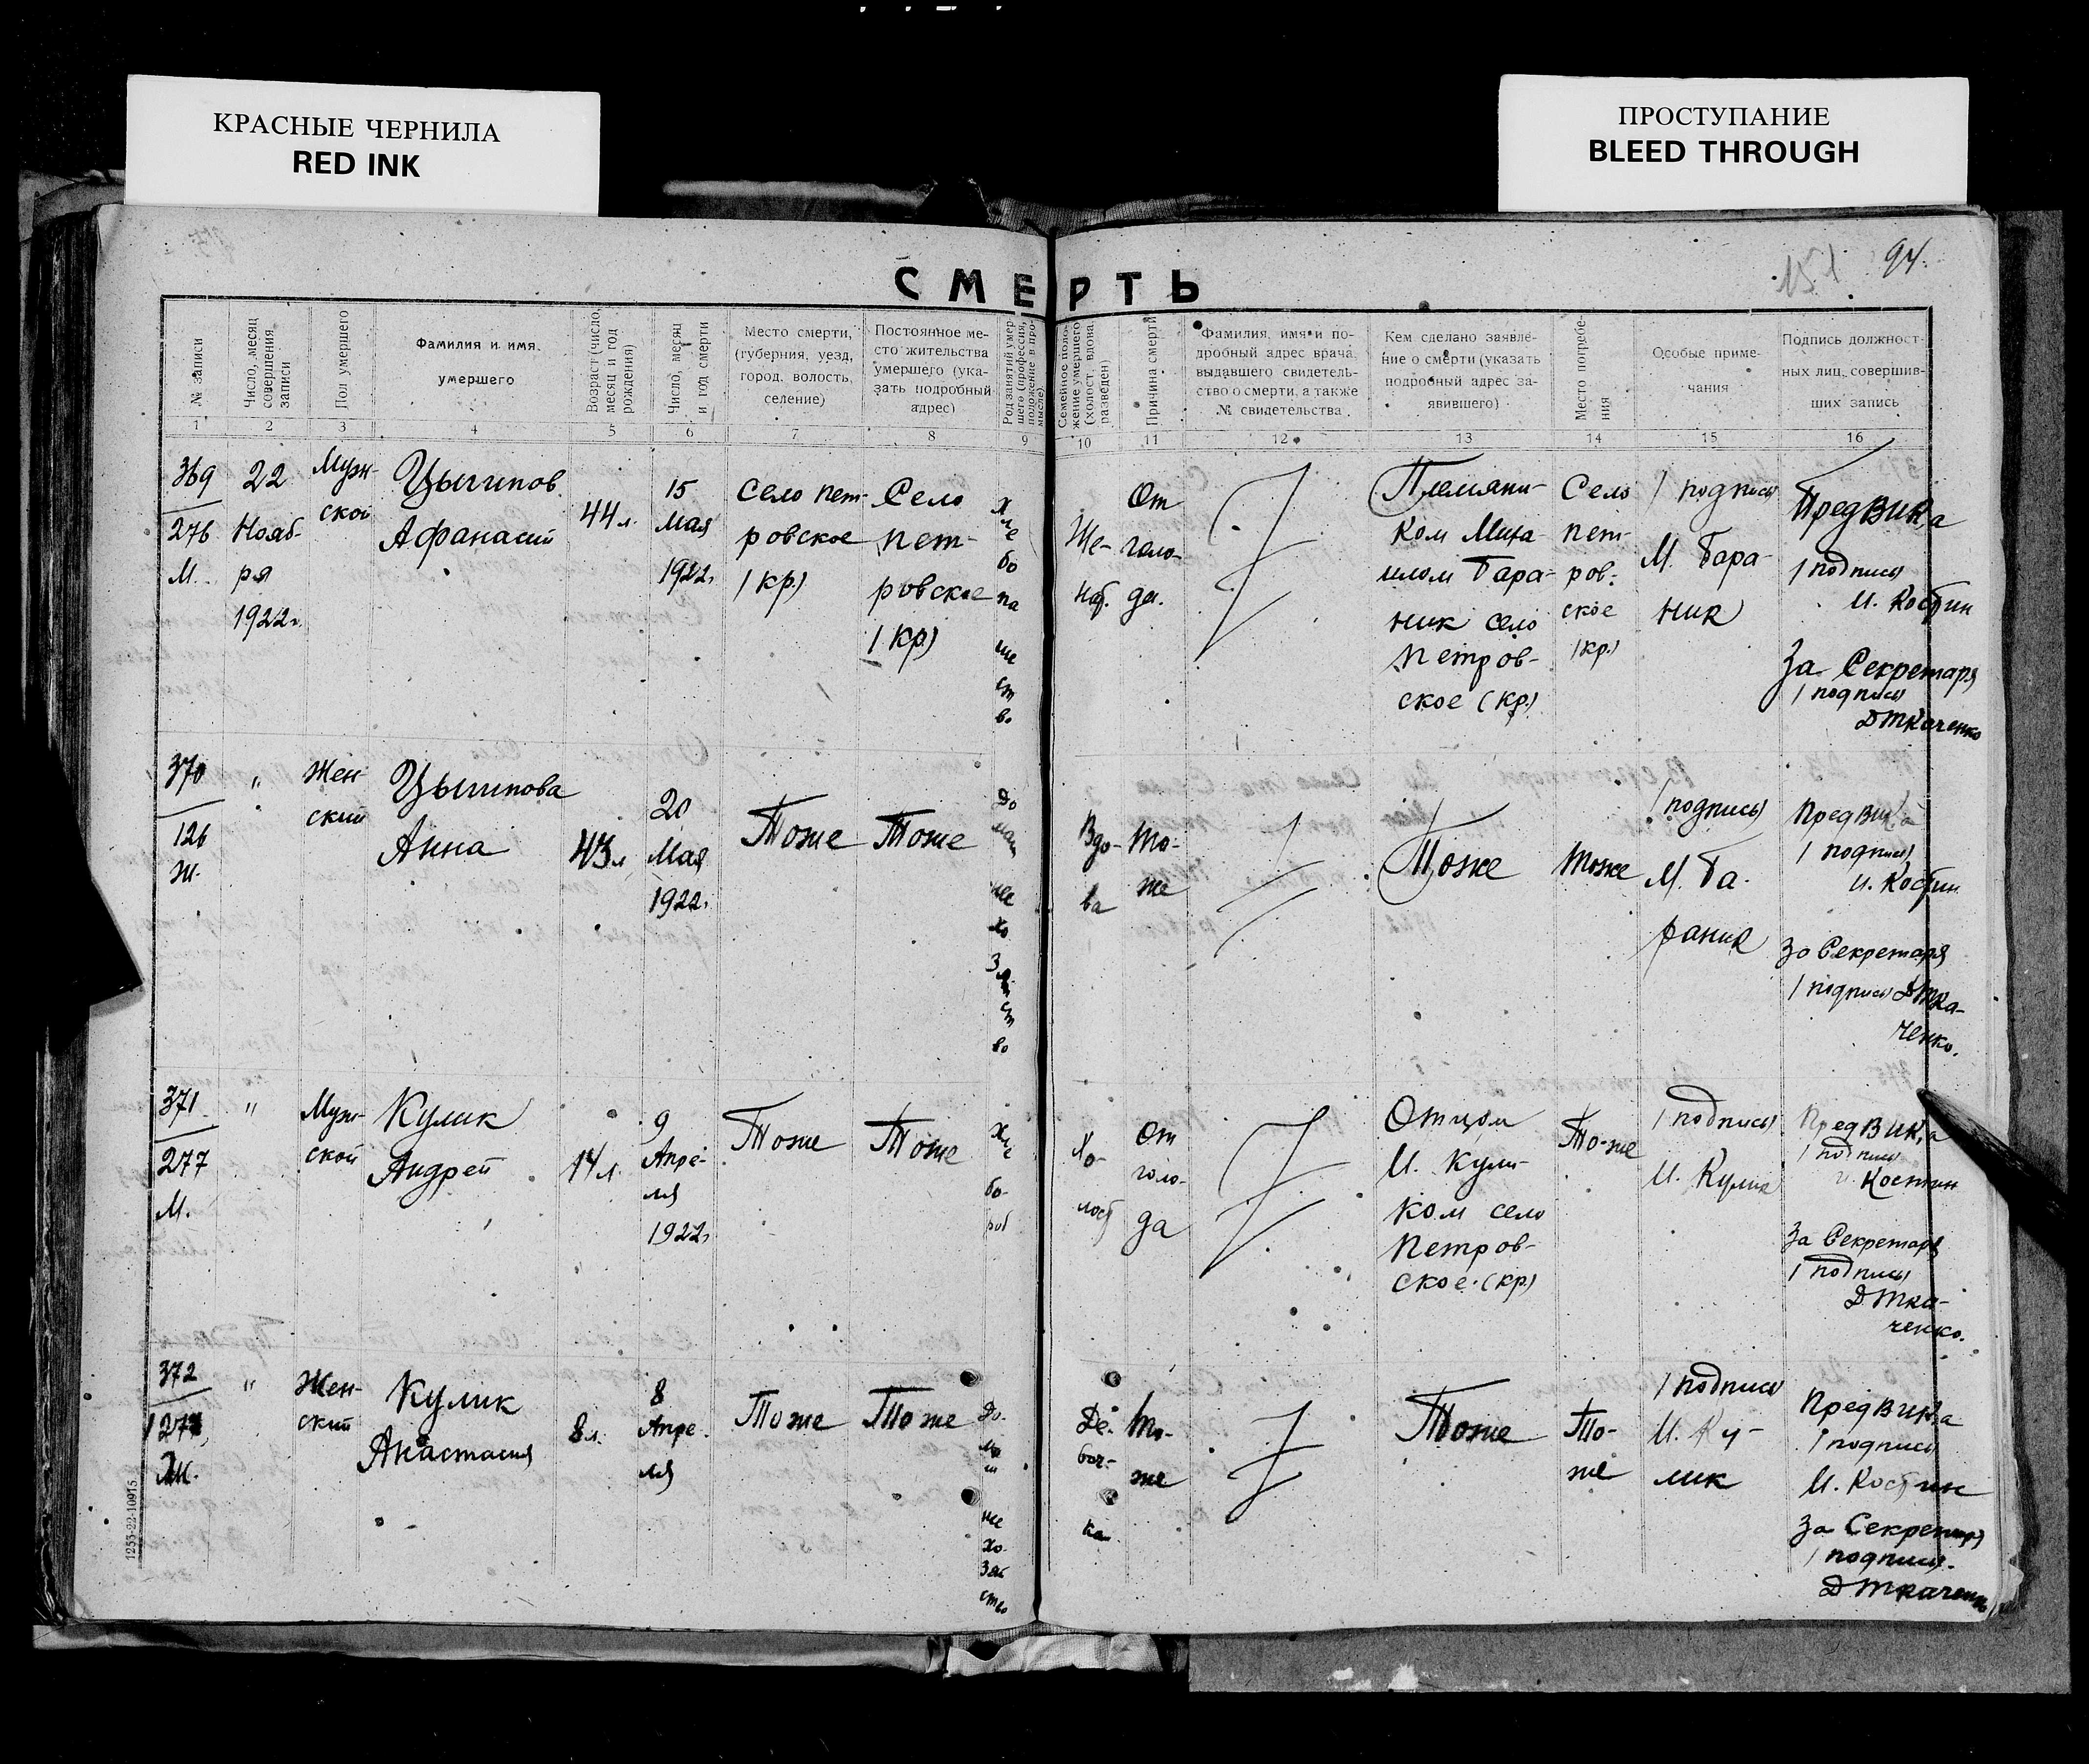 КРАСНЫЕ ЧЕРНИЛА
RED INK
ПРОСТУПАНИЕ
BLEED THROUGH
94.
СМЕРТЬ
№ записи
Число, месяц совершения записи
Пол умершего
Фамилия и имя умершего
Возраст (число, месяц и год рождения)
Число, месяц и год смерти
Место смерти, (губерния, уезд, город, волость, селение)
Постоянное место жительства умершего (указать подробный адрес)
Род занятий умершего (профессия, положение в промысле)
Семейное положение умершего (холост, вдова, разведен)
Причина смерти
Фамилия, имя и подробный адрес врача, выдавшего свидетельство о смерти, а также № свидетельства
Кем сделано заявление о смерти (указать подробный адрес заявившего)
Место погребения
Особые примечания
Подпись должностных лиц, совершивших запись
1 2 3 4 5 6 7 8 9 10 11 12 13 14 15 16
369
276
М.
22
Нояб-
ря
1922г.
Муж-
ской
Афанасий
44 л.
15
Мая
1922г.
Село Пет-
ровское
(кр.)
Село
Пет-
ровское
(кр.)
Хле
бо
па
ше
ст
во
Же-
нат.
От
голо-
да.
Племянни-
ком Миха-
илом Бара-
ник село
Петров-
ское (кр.)
Село
Пет-
ров-
ское
(кр.)
(подпись)
М. Бара-
ник
ПредВИКа
(подпись)
И. Костин
За Секретаря
(подпись)
Д Ткаченко
370
126
Ж.
"
Жен-
ский
Анна
43 л.
20
Мая
1922г.
Тоже
Тоже
До
маш
нее
хо
зяй
ст
во
Вдо-
ва
То-
же
Тоже
Тоже
(подпись)
М. Ба-
раник
ПредВИКа
(подпись)
И. Костин
За Секретаря
(подпись) Д Тка-
ченко.
371
277
М.
"
Муж-
ской
Кулик
Андрей
14 л.
9
Апре-
ля
1922г.
Тоже
Тоже
Хле
бо-
роб
Хо-
лост
От
голо-
да
Отцом
И. Кули-
ком село
Петров-
ское (кр.)
Тоже
(подпись)
И. Кулик
ПредВИКа
(подпись)
И. Костин
За Секретаря
(подпись)
Д Тка-
ченко.
372
Ж.
"
Жен-
ский
Кулик
Анастасия
8 л.
8
Апре-
ля
Тоже
Тоже
До-
маш
нее
хо-
зяй
ство
Де-
воч-
ка
То-
же
Тоже
То-
же
(подпись)
И. Ку-
лик
ПредВИКа
(подпись)
И. Костин
За Секретаря
(подпись)
Д Ткаченко
1255-22-10915